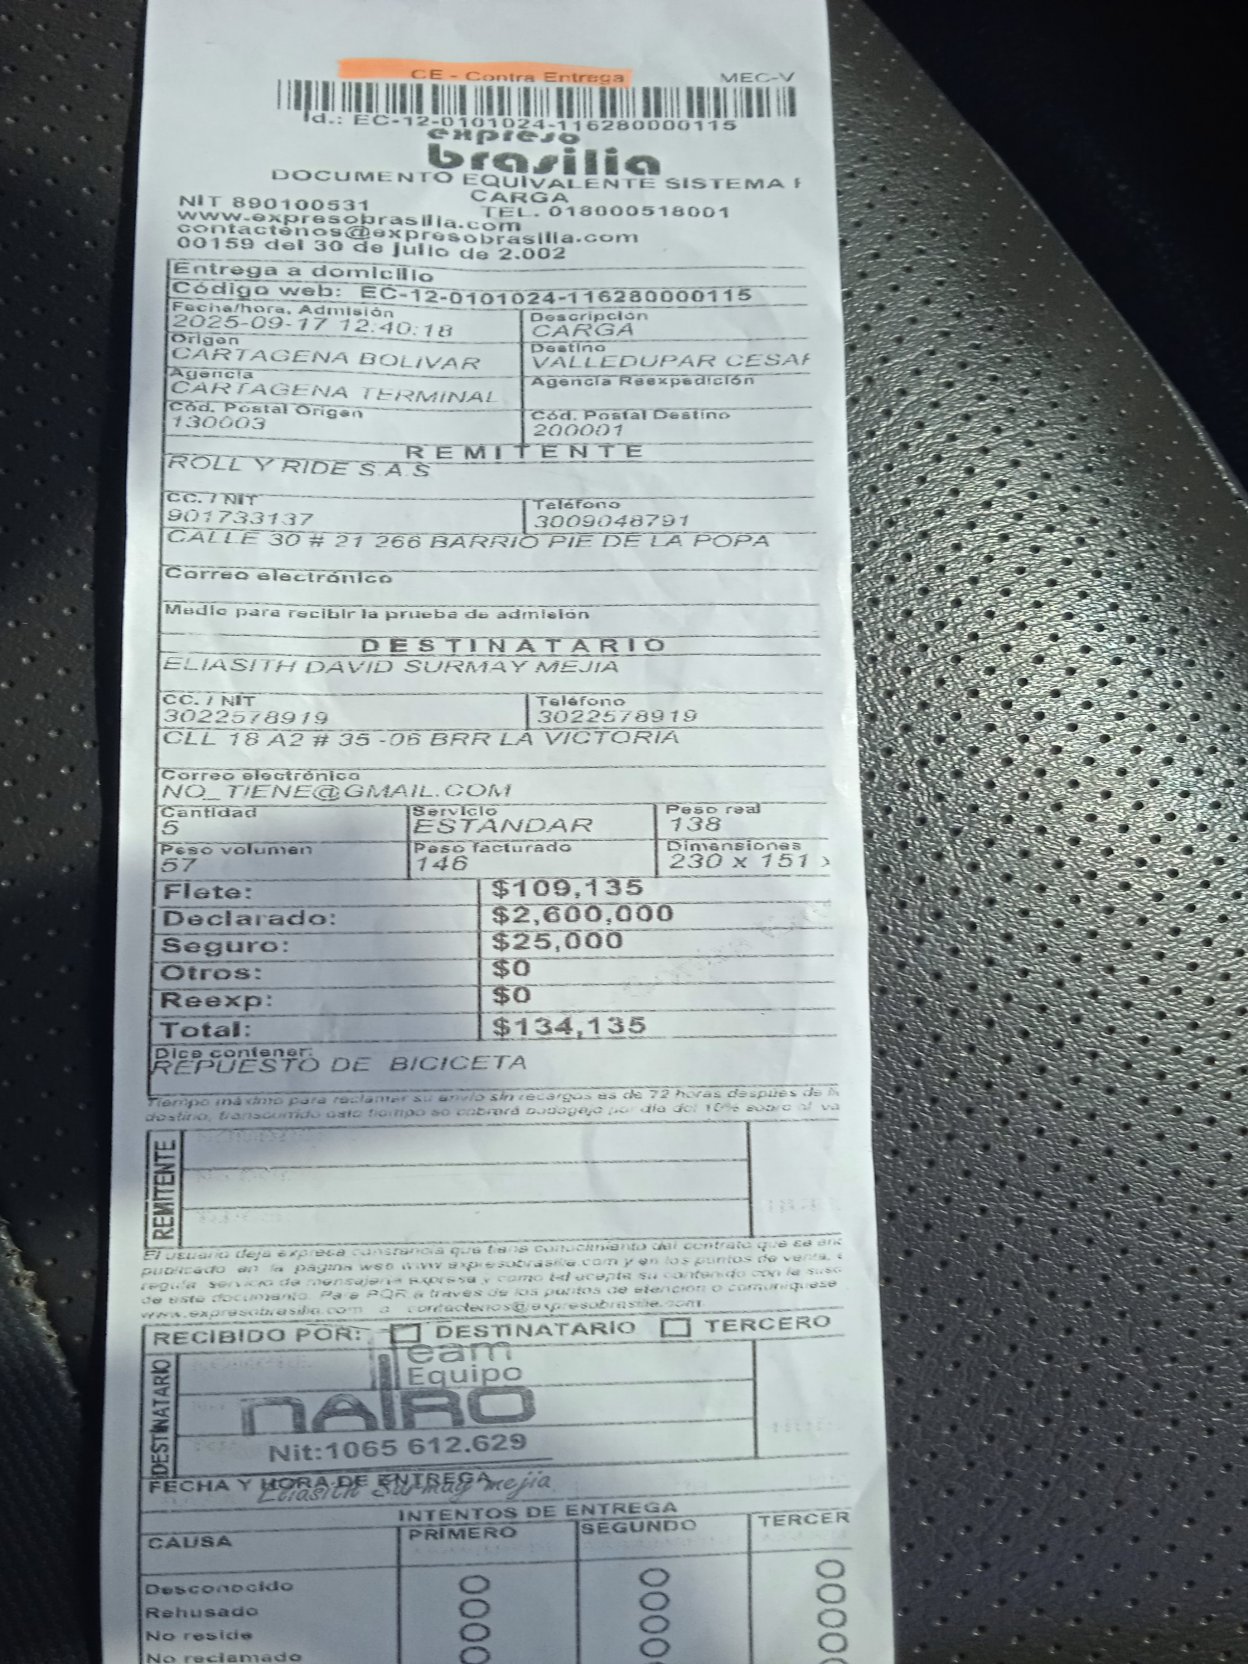 CE - Contra Entrega MEC-V
Id.: EC-12-0101024-116280000115
expreso
brasilia
DOCUMENTO EQUIVALENTE SISTEMA
CARGA
NIT 890100531 TEL. 018000518001
www.expresobrasilia.com
contactenos@expresobrasilia.com
00159 del 30 de julio de 2.002
Entrega a domicilio
Código web: EC-12-0101024-116280000115
Fecha/hora. Admisión Descripción
2025-09-17 12:40:18 CARGA
Origen Destino
CARTAGENA BOLIVAR VALLEDUPAR CESAR
Agencia Agencia Reexpedición
CARTAGENA TERMINAL
Cód. Postal Origen Cód. Postal Destino
130003 200001
REMITENTE
ROLL Y RIDE S.A.S
CC. / NIT Teléfono
901733137 3009048791
CALLE 30 # 21 266 BARRIO PIE DE LA POPA
Correo electrónico
Medio para recibir la prueba de admisión
DESTINATARIO
ELIASITH DAVID SURMAY MEJIA
CC. / NIT Teléfono
3022578919 3022578919
CLL 18 A2 # 35 -06 BRR LA VICTORIA
Correo electrónico
NO_TIENE@GMAIL.COM
Cantidad Servicio Peso real
5 ESTANDAR 138
Peso volumen Peso facturado Dimensiones
57 146 230 x 151
Flete: $109,135
Declarado: $2,600,000
Seguro: $25,000
Otros: $0
Reexp: $0
Total: $134,135
Dice contener:
REPUESTO DE BICICETA
Tiempo máximo para reclamar su envío sin recargos es de 72 horas después de
destino, transcurrido este tiempo se cobrará bodegaje por día del 10% sobre el va
REMITENTE
El usuario deja expresa constancia que tiene conocimiento del contrato que se
publicado en la página web www.expresobrasilia.com y en los puntos de venta,
regula servicio de mensajería expresa y como tal acepta su contenido con la
de este documento. Para PQR a través de los puntos de atención o comuníquese
www.expresobrasilia.com a contactenos@expresobrasilia.com
RECIBIDO POR: DESTINATARIO TERCERO
DESTINATARIO
Team
Equipo
NAIRO
Nit:1065 612.629
FECHA Y HORA DE ENTREGA
Eliasith Surmay mejia
INTENTOS DE ENTREGA
CAUSA PRIMERO SEGUNDO TERCER
Desconocido
Rehusado
No reside
No reclamado